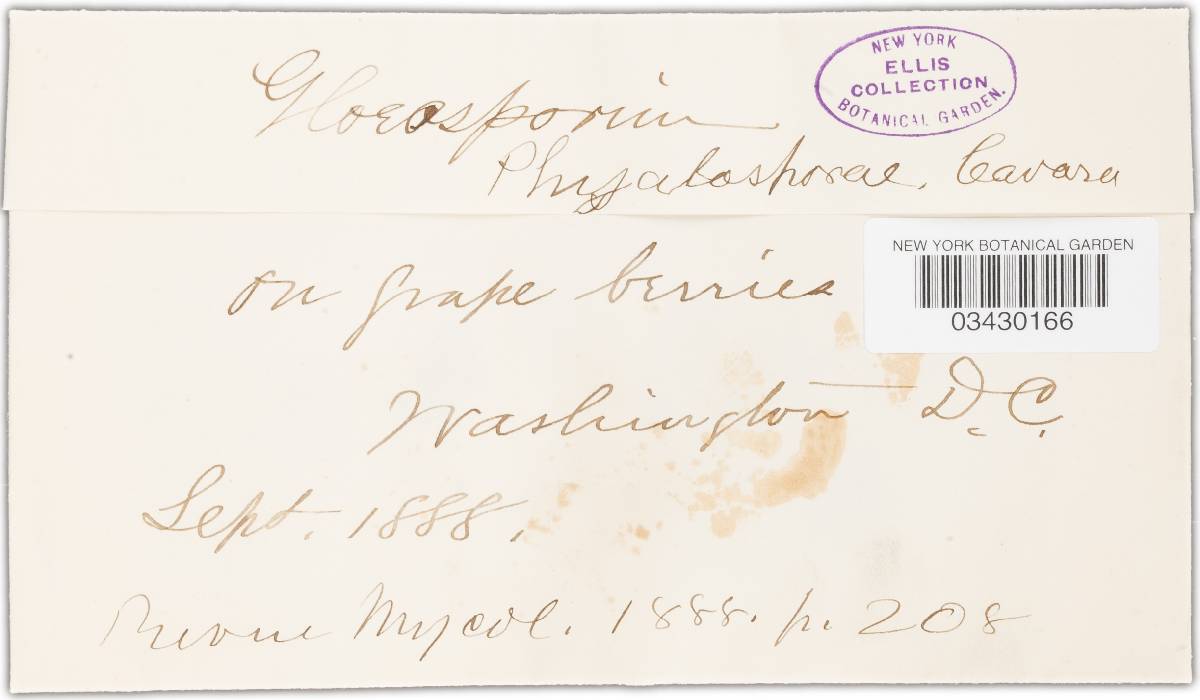 NEW YORK
ELLIS
COLLECTION
BOTANICAL GARDEN.
Gloeosporium
Physalosporae, Cavara
NEW YORK BOTANICAL GARDEN
03430166
on grape berries
Washington D.C.
Sept. 1888.
Revue Mycol. 1888. p. 208